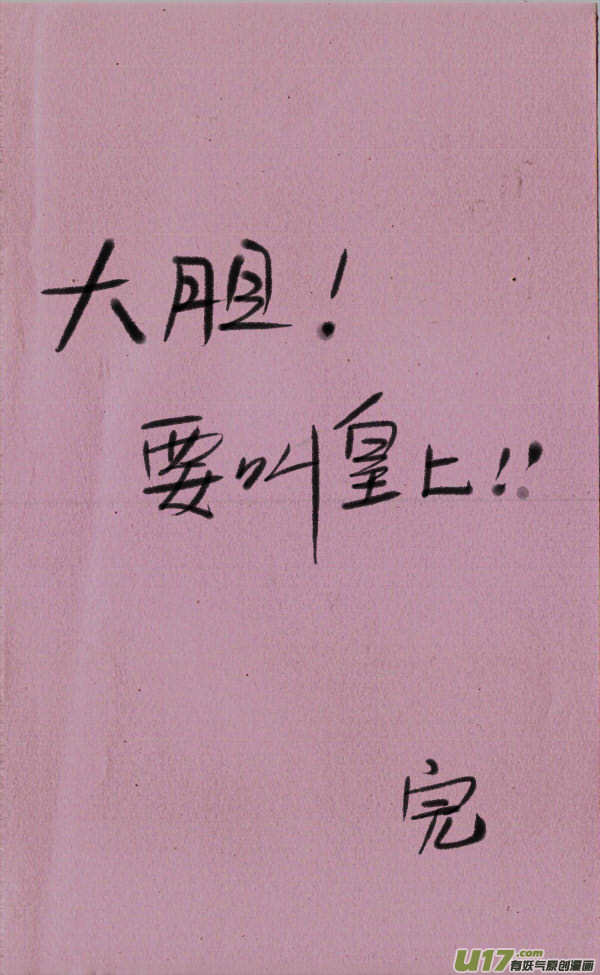 大胆！
要叫皇上！！
完
U17.com
有妖气原创漫画